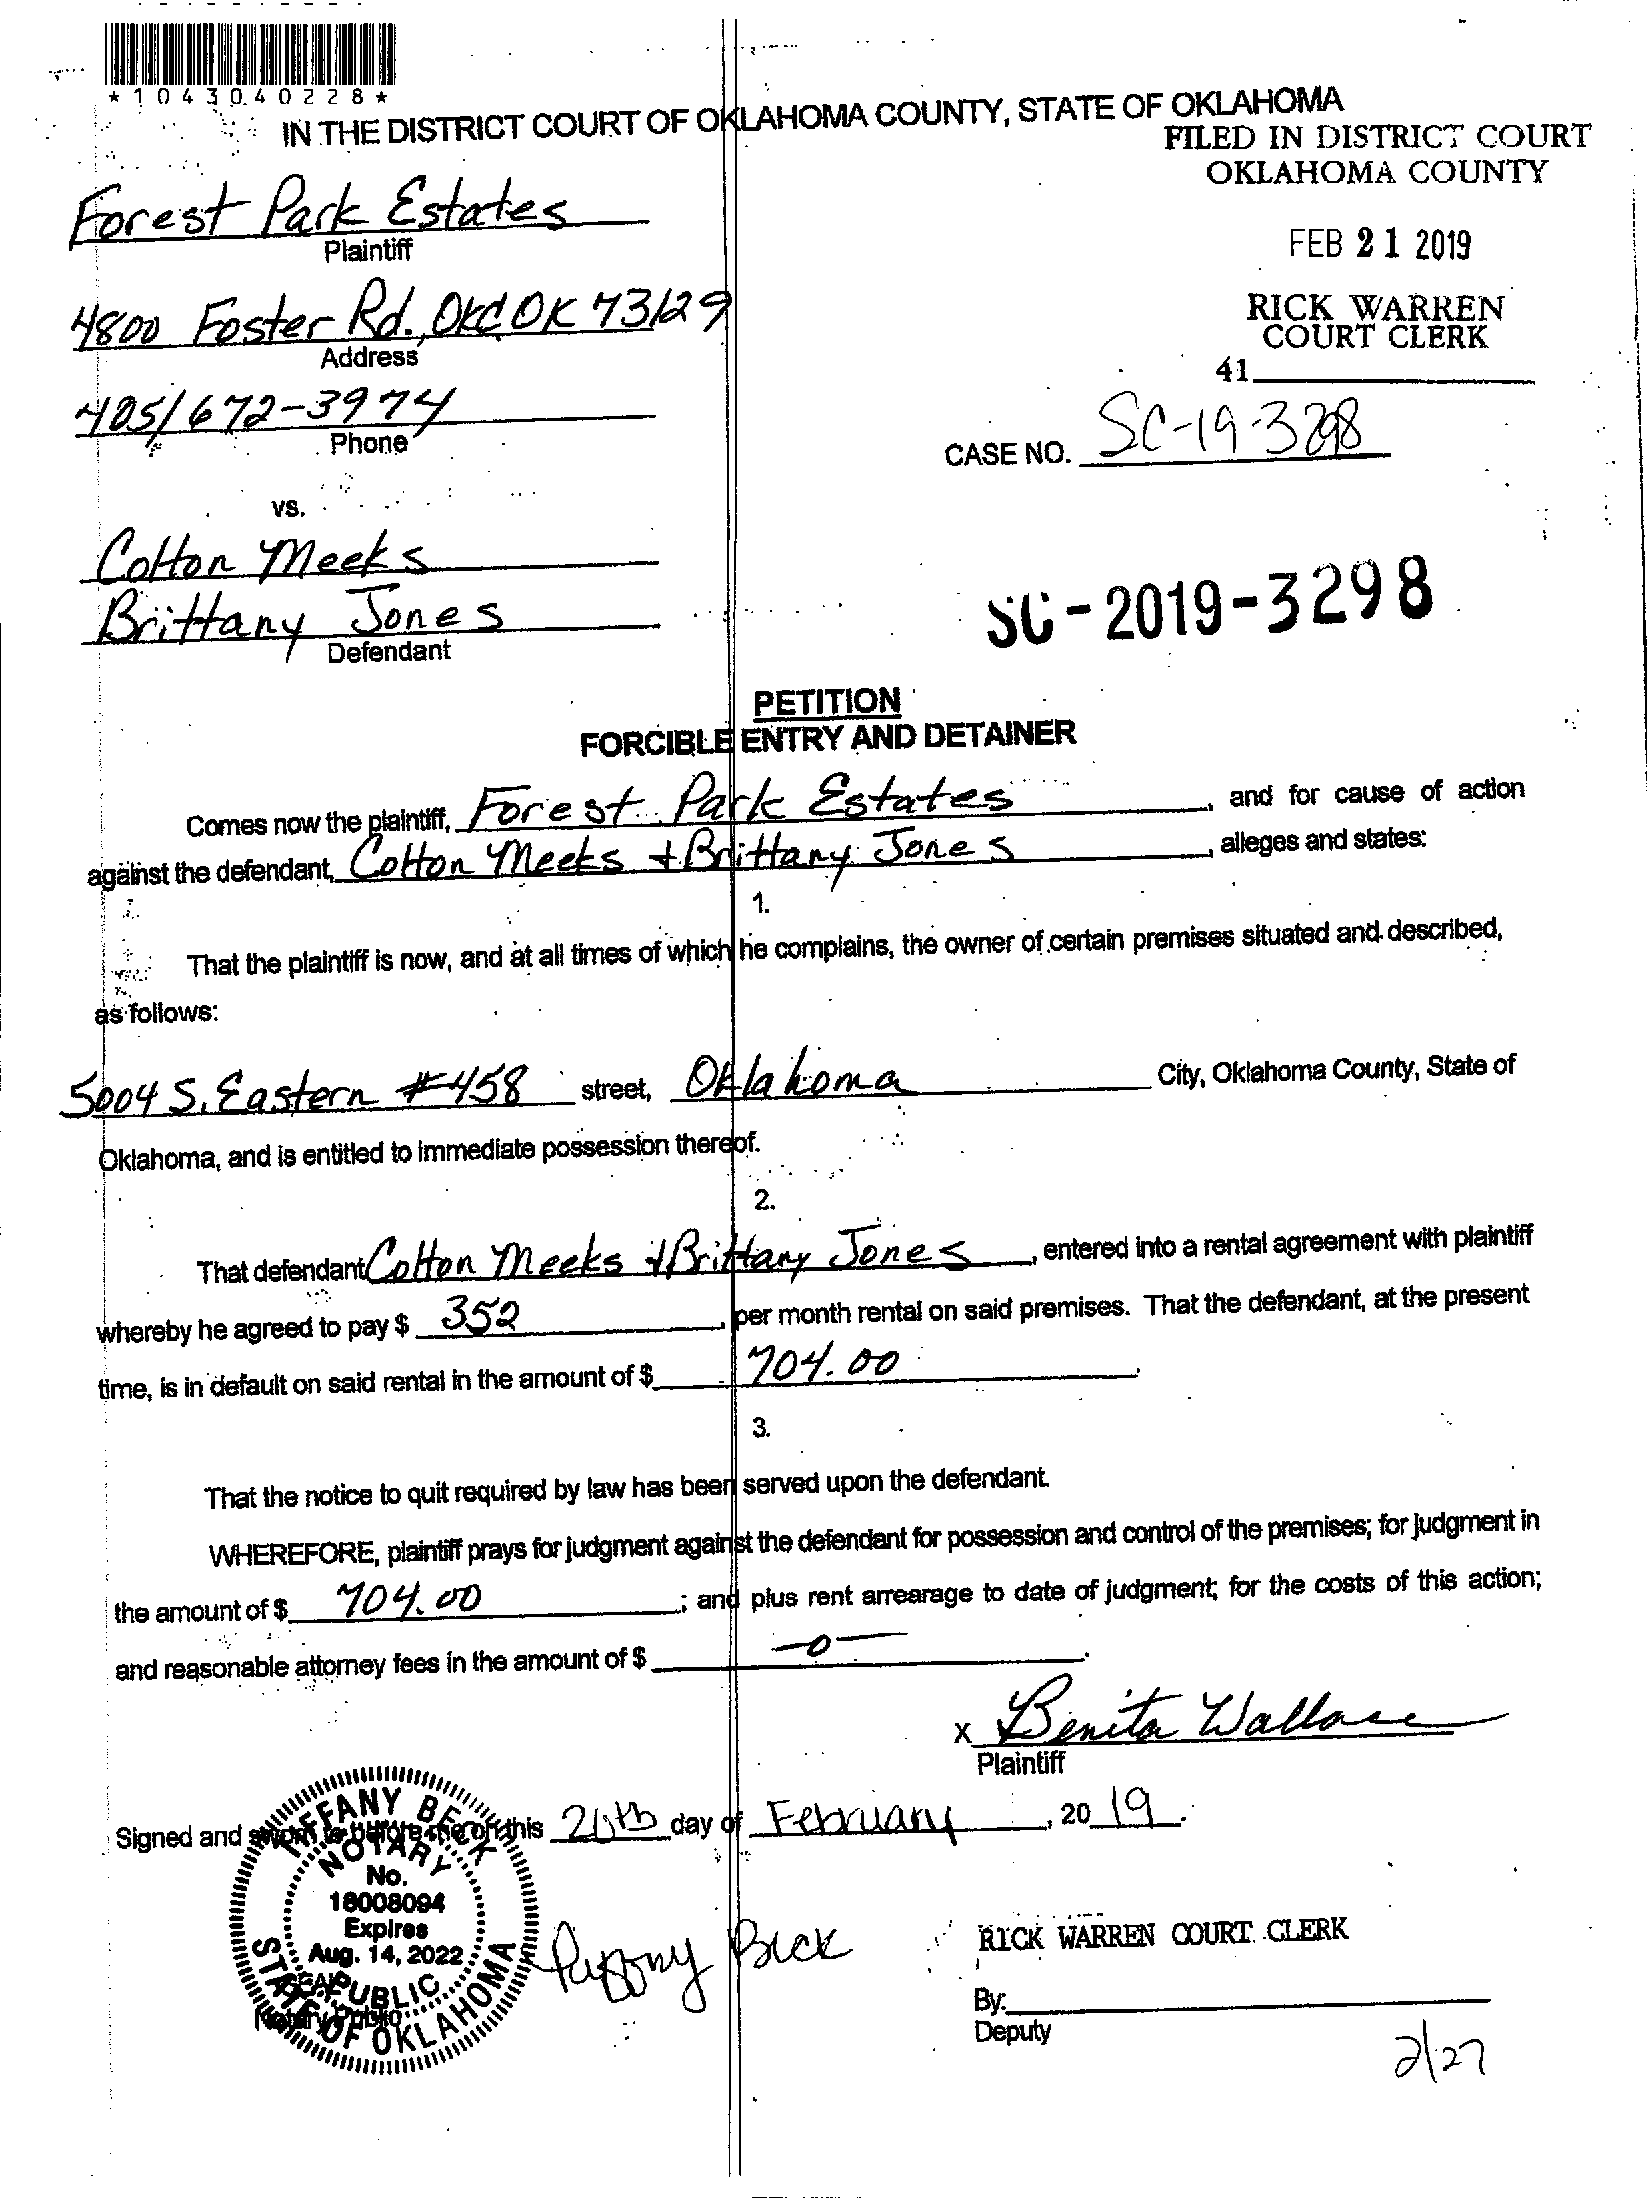 *1043040228*
IN THE DISTRICT COURT OF OKLAHOMA COUNTY, STATE OF OKLAHOMA
FILED IN DISTRICT COURT
OKLAHOMA COUNTY
Forest Park Estates
Plaintiff
FEB 21 2019
4800 Foster Rd., OKC OK 73129
Address
RICK WARREN
COURT CLERK
41
405/672-3974
Phone
CASE NO. SC-19-3298
vs.
Colton Meeks
Brittany Jones
Defendant
SC-2019-3298
PETITION
FORCIBLE ENTRY AND DETAINER
Comes now the plaintiff, Forest Park Estates, and for cause of action
against the defendant, Colton Meeks + Brittany Jones, alleges and states:
1.
That the plaintiff is now, and at all times of which he complains, the owner of certain premises situated and described,
as follows:
5004 S. Eastern #458 street, Oklahoma City, Oklahoma County, State of
Oklahoma, and is entitled to immediate possession thereof.
2.
That defendant Colton Meeks + Brittany Jones, entered into a rental agreement with plaintiff
whereby he agreed to pay $ 352, per month rental on said premises. That the defendant, at the present
time, is in default on said rental in the amount of $ 704.00.
3.
That the notice to quit required by law has been served upon the defendant.
WHEREFORE, plaintiff prays for judgment against the defendant for possession and control of the premises; for judgment in
the amount of $ 704.00; and plus rent arrearage to date of judgment; for the costs of this action;
and reasonable attorney fees in the amount of $ -0-.
x Benita Wallace
Plaintiff
Signed and sworn to before me on this 20th day of February, 2019.
TIFFANY BECK
NOTARY
No.
18008094
Expires
Aug. 14, 2022
SEAL
PUBLIC
Notary Public
STATE OF OKLAHOMA
Tiffany Beck
RICK WARREN COURT CLERK
By:
Deputy
2/27